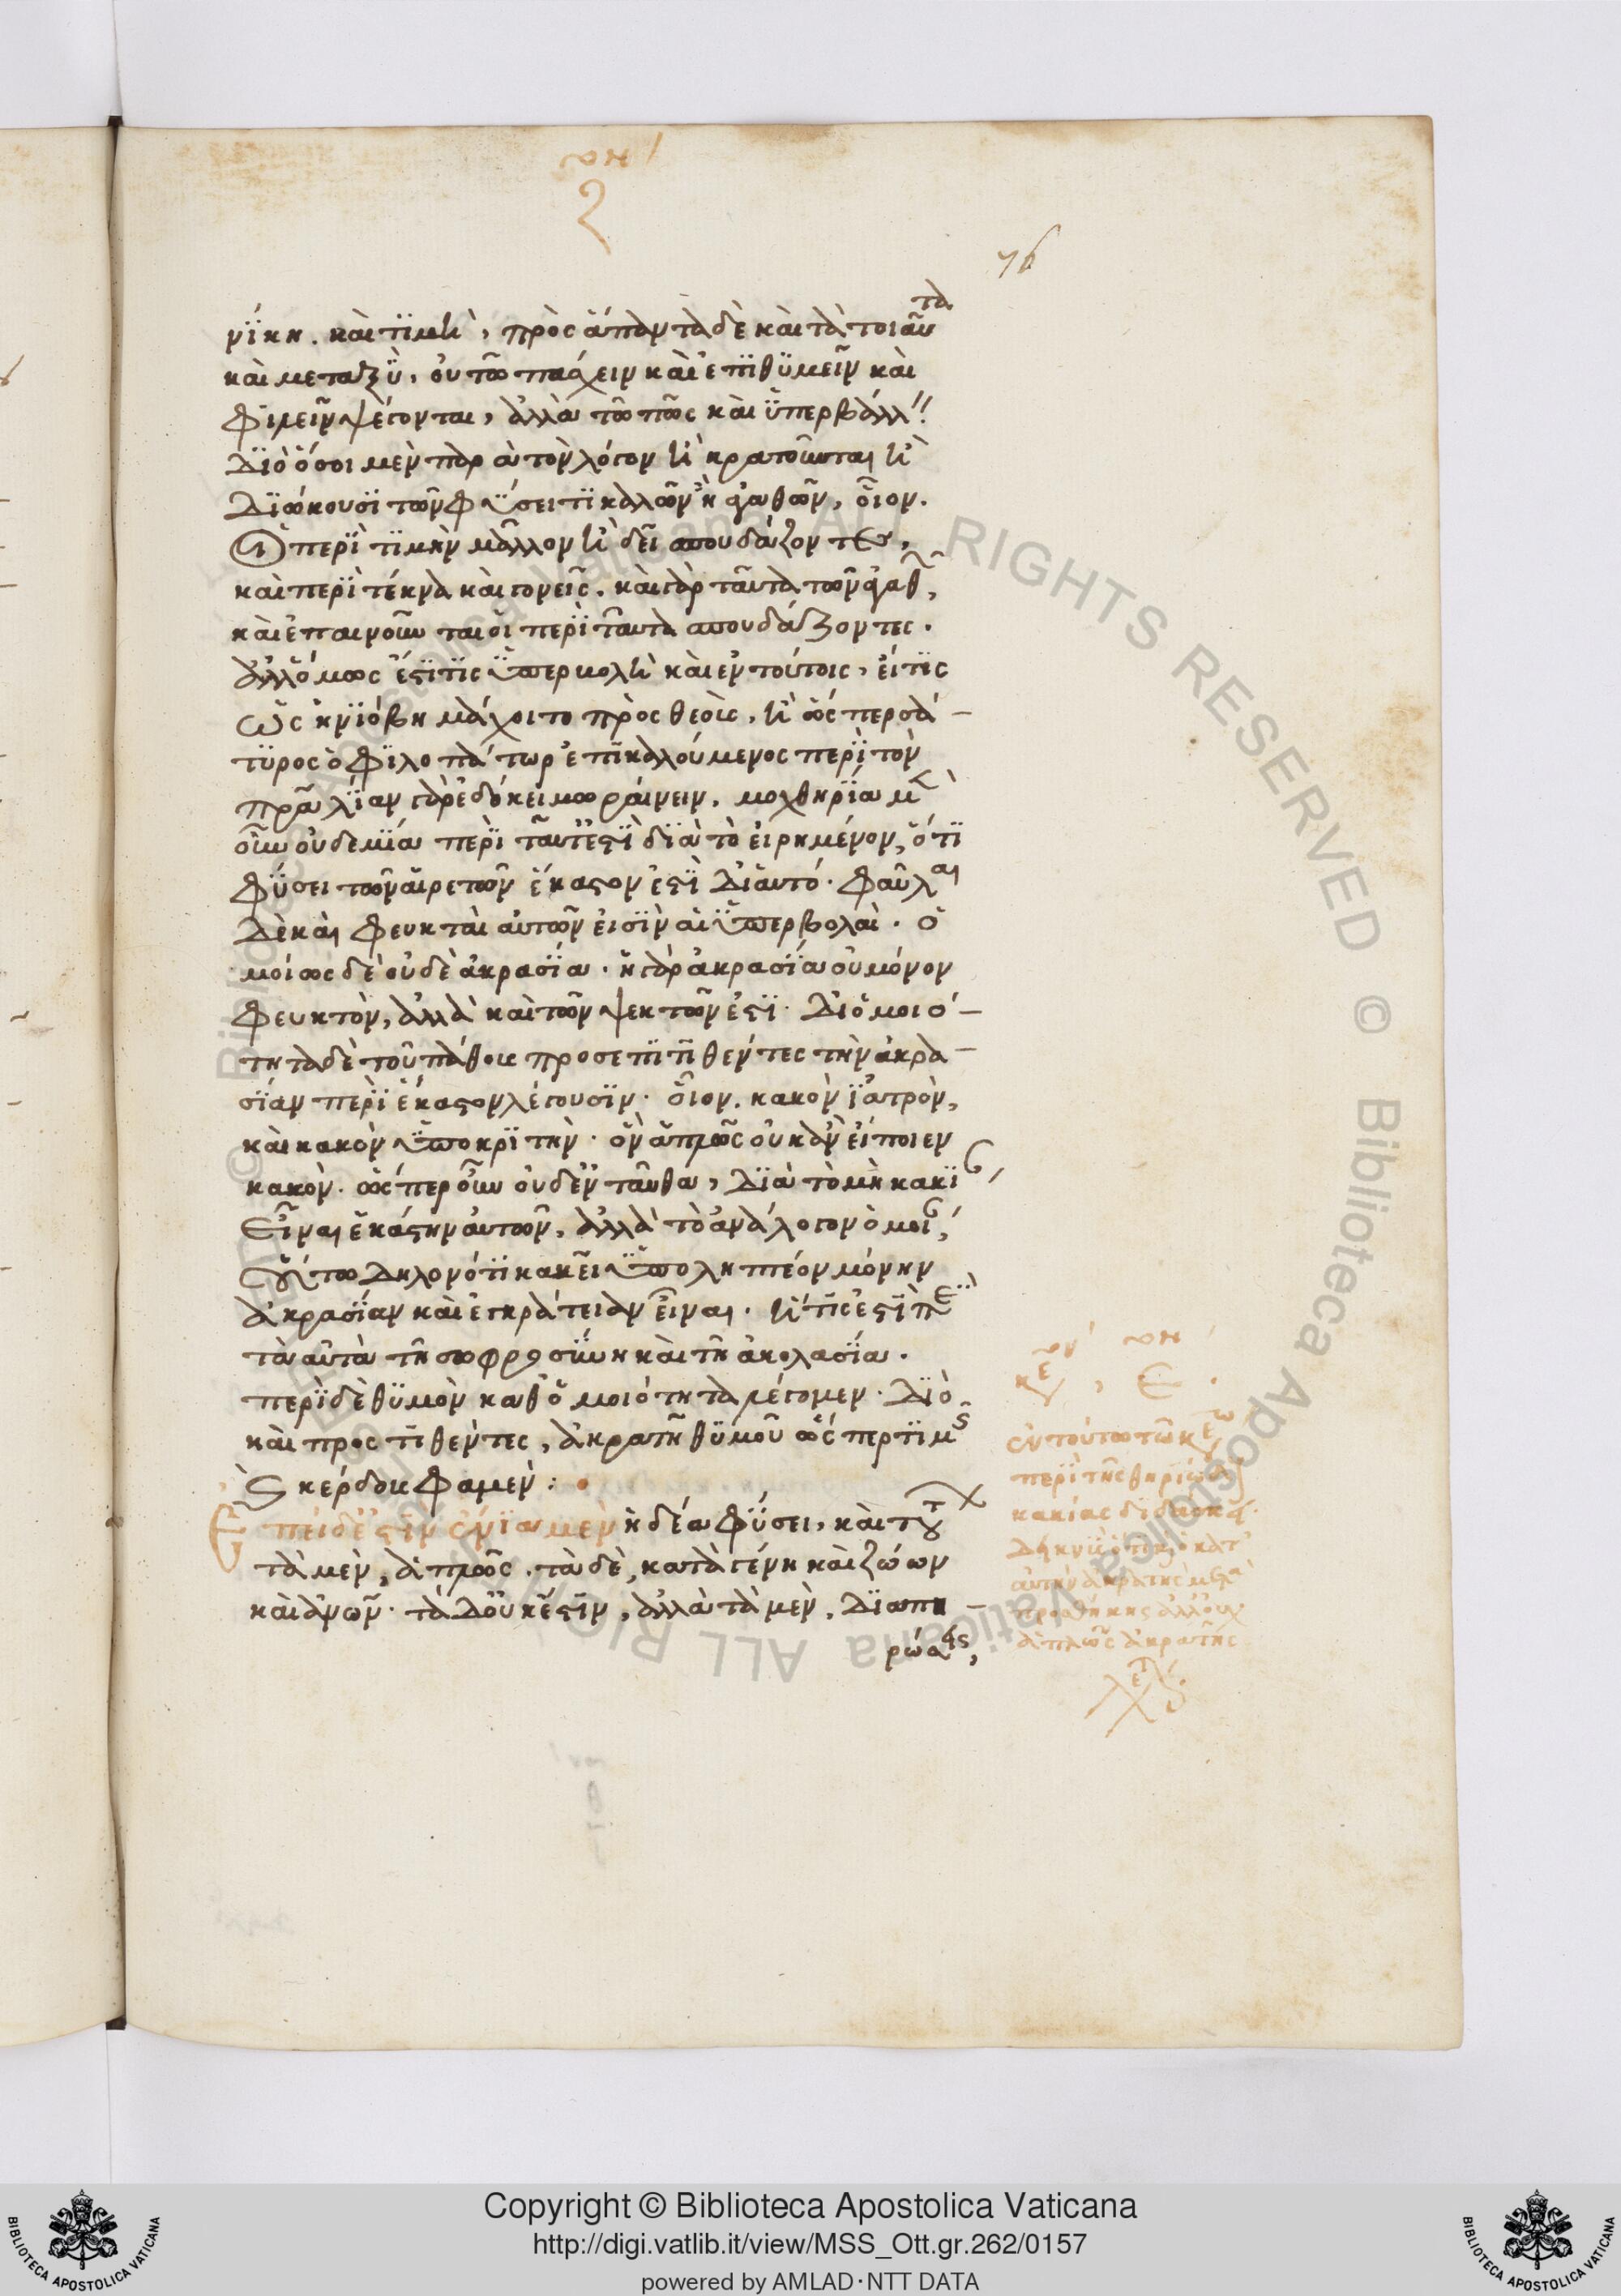 τὸν
ζ
76
νίκη. καὶ τιμὴ, πρὸς ἅπαντα δὲ καὶ τὰ τοιαῦτα
καὶ μεταξὺ, οὐ τῶ πάσχειν καὶ ἐπιθυμεῖν καὶ
φιλεῖν ψέγονται, ἀλλὰ τῶ πῶς καὶ ὑπερβάλλ
διὸ ὅσοι μὲν παρὰ τὸν λόγον ἢ κρατοῦνται ἢ
διώκουσι τῶν φύσει τι καλῶν ἢ ἀγαθῶν, οἷον.
οἱ περὶ τιμὴν μᾶλλον ἢ δεῖ σπουδάζοντες,
καὶ περὶ τέκνα καὶ γονεῖς. καὶ γὰρ ταῦτα τῶν ἀγαθ,
καὶ ἐπαινοῦνται οἱ περὶ ταῦτα σπουδάζοντες.
ἀλλ' ὅμως ἔστι τις ὑπερβολὴ καὶ ἐν τούτοις, εἴ τις
ὡς ἡ νιόβη μάχοιτο πρὸς θεοὺς, ἢ ὥσπερ σά–
τυρος ὁ φιλοπάτωρ ἐπικαλούμενος περὶ τὸν
πρα λίαν γὰρ ἐδόκει μωραίνειν. μοχθηρία μ
οὖν οὐδεμία περὶ ταῦτ' ἐστὶ διὰ τὸ εἰρημένον, ὅτι
φύσει τῶν αἱρετῶν ἕκαστον ἐστὶ δι' αὑτό. φαῦλαι
δὲ καὶ φευκταὶ αὐτῶν εἰσὶν αἱ ὑπερβολαὶ. ὁ
μοίως δὲ οὐδὲ ἀκρασία. ἡ γὰρ ἀκρασία οὐ μόνον
φευκτὸν, ἀλλὰ καὶ τῶν ψεκτῶν ἐστὶ. δι' ὁμοιό–
τητα δὲ τοῦ πάθους προσεπιτιθέντες τὴν ἀκρα–
σίαν περὶ ἕκαστον λέγουσιν. οἷον. κακὸν ἰατρὸν,
καὶ κακὸν ὑποκριτὴν. ὃν ἁπλῶς οὐκ ἂν εἴποιεν
κακὸν. ὥσπερ οὖν οὐδ' ἐνταῦθα, διὰ τὸ μὴ κακί
εἶναι ἑκάστην αὐτῶν, ἀλλὰ τὸ ἀνάλογον ὁμοί,
οὕτω δηλονότι κἀκεῖ ὑποληπτέον μόνην
ἀκρασίαν καὶ ἐγκράτειαν εἶναι. ἥτις ἐστὶ περὶ
τὰ αὐτὰ τῆ σωφροσύνη καὶ τῆ ἀκολασία.
περὶ δὲ θυμὸν καθ' ὁμοιότητα λέγομεν. διὸ
καὶ προστιθέντες, ἀκρατῆ θυμοῦ ὥσπερ τιμς
καὶ κέρδους φαμὲν:
Ἐπεὶ δ' ἐστὶν ἔνια μὲν ἡδέα φύσει, καὶ τούτ
τὰ μὲν, ἁπλῶς. τὰ δὲ, κατὰ γένη καὶ ζώων
καὶ ἀνων. τὰ δ' οὐκ ἔστιν, ἀλλὰ τὰ μὲν, διὰ πη–
ρώσεις,
κε, τὸν ε.
ἐν τούτω τῶ κε
περὶ τῆς θηριώδ
κακίας διδάσκει.
δεικνὺς ὅτι ὁ κατ'
αὐτὴν ἀκρατὴς μετὰ
προσθήκης ἀλλ' οὐχ
ἁπλῶς ἀκρατής